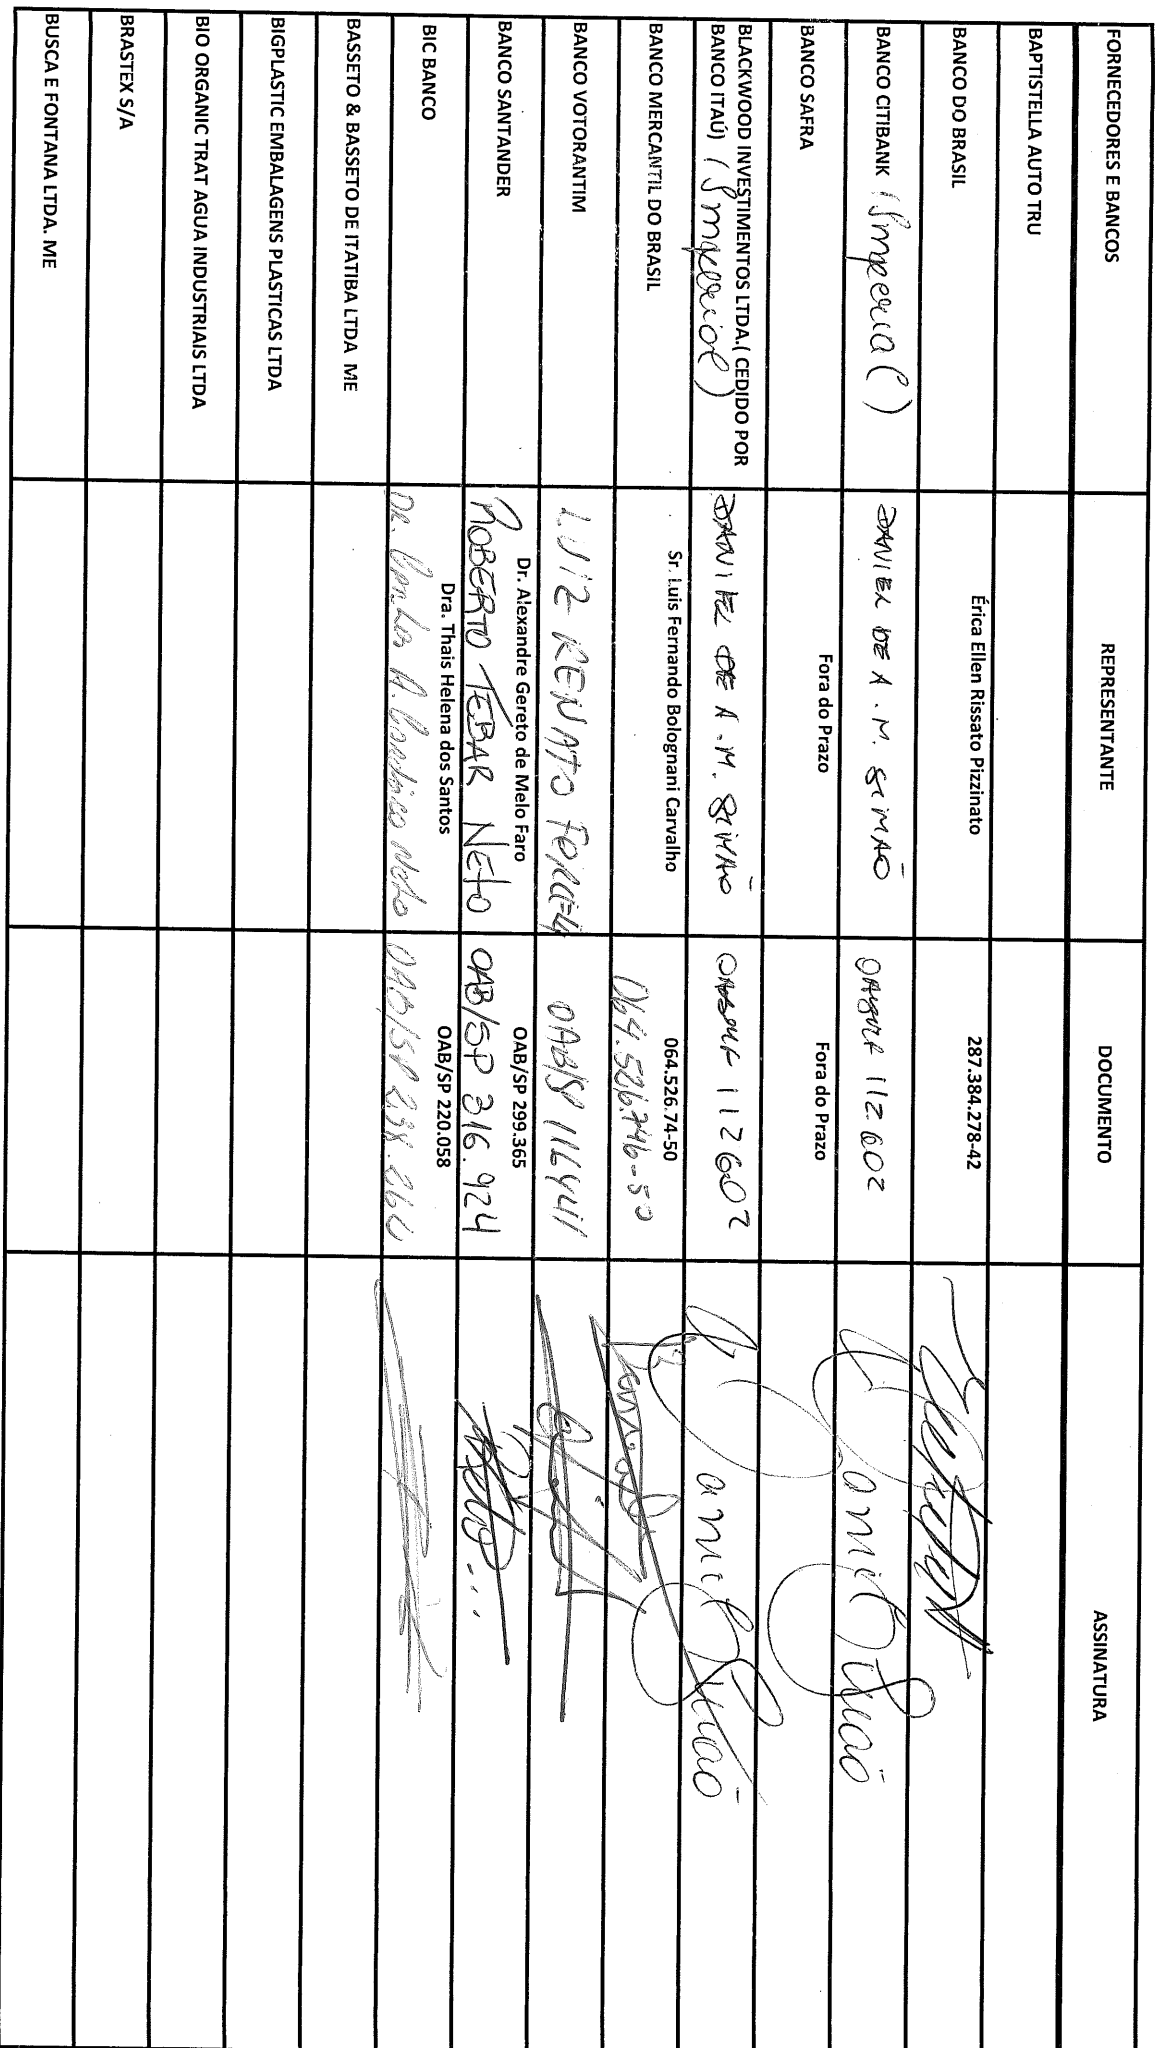 FORNECEDORES E BANCOS REPRESENTANTE DOCUMENTO ASSINATURA
BAPTISTELLA AUTO TRU
BANCO DO BRASIL Érica Ellen Rissato Pizzinato 287.384.278-42
BANCO CITIBANK (Imperial) DANIEL DE A. M. SIMÃO 112.602 Daniel Simão
BANCO SAFRA Fora do Prazo Fora do Prazo
BLACKWOOD INVESTIMENTOS LTDA.( CEDIDO POR
BANCO ITAÚ) (Imperial) DANIEL DE A. M. SIMÃO 112602 Daniel Simão
BANCO MERCANTIL DO BRASIL Sr. Luis Fernando Bolognani Carvalho 064.526.74-50
064.526.746-50
BANCO VOTORANTIM LUIZ RENATO OAB/SP 116441
BANCO SANTANDER Dr. Alexandre Gereto de Melo Faro OAB/SP 299.365
ROBERTO TEBAR NETO OAB/SP 316.924
BIC BANCO Dra. Thais Helena dos Santos OAB/SP 220.058
Dr. A. Neto OAB/SP 238.260
BASSETO & BASSETO DE ITATIBA LTDA ME
BIGPLASTIC EMBALAGENS PLASTICAS LTDA
BIO ORGANIC TRAT AGUA INDUSTRIAIS LTDA
BRASTEX S/A
BUSCA E FONTANA LTDA. ME